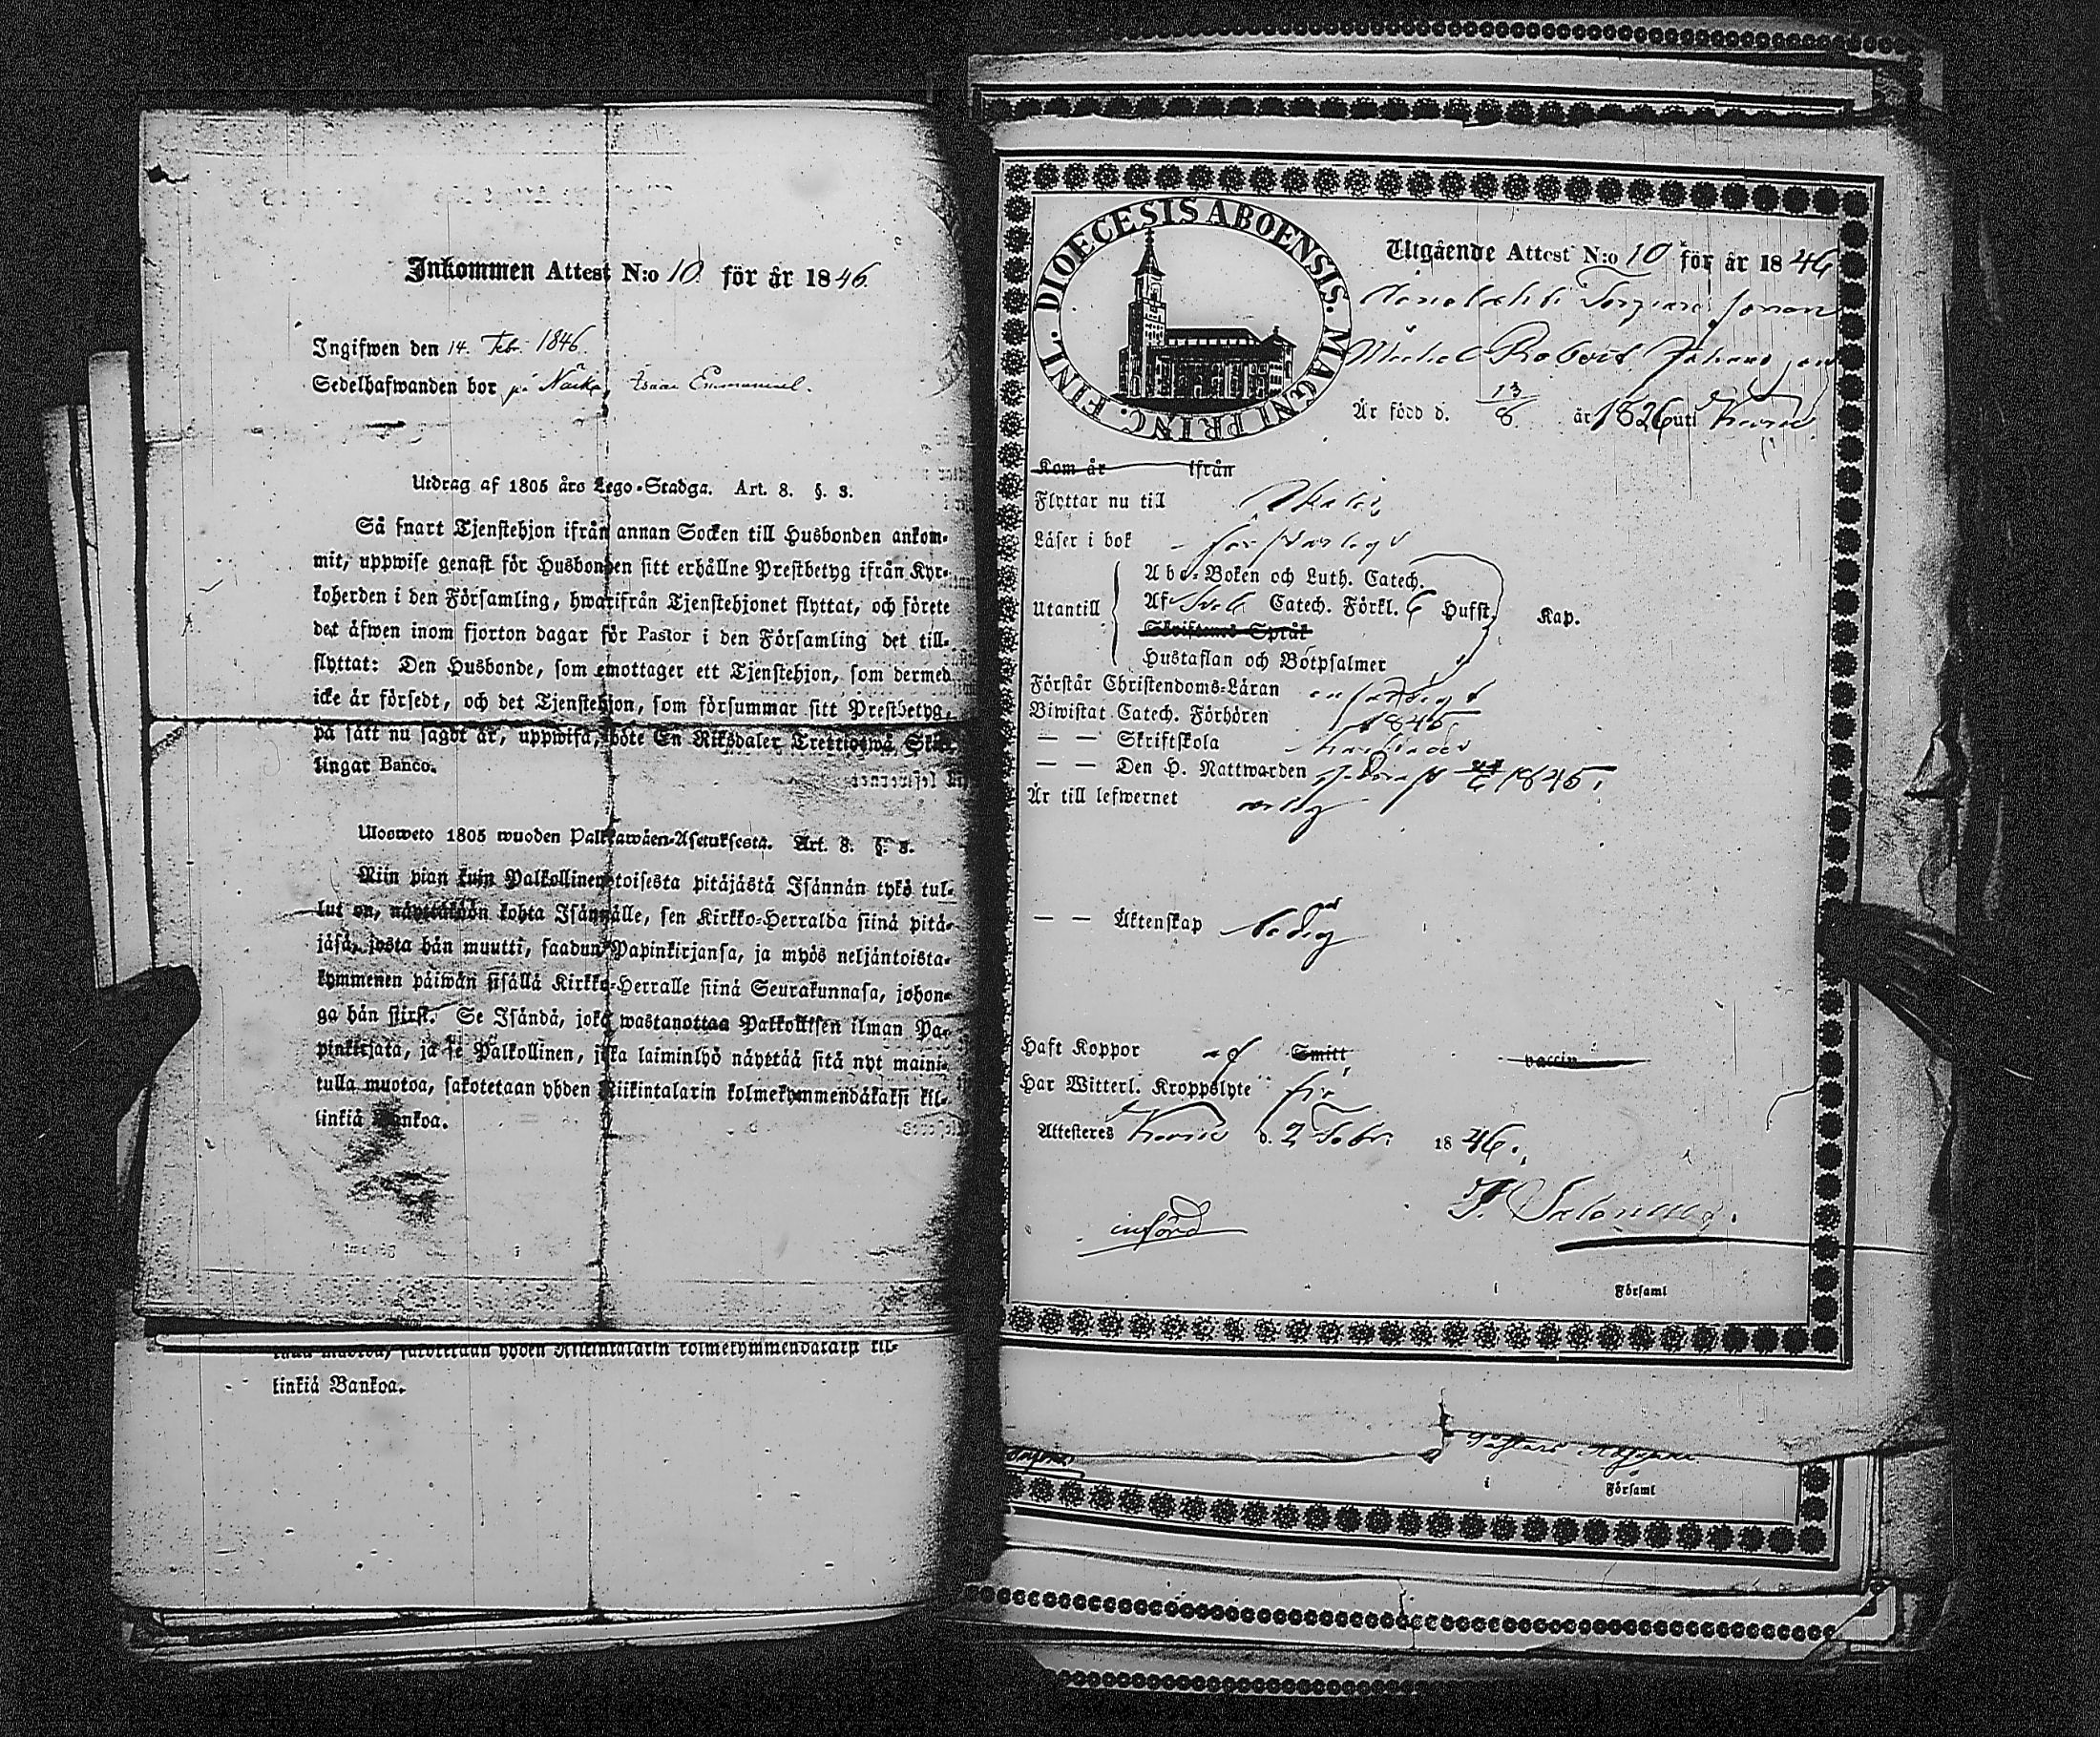 Inkommen Attest N:o 10. för år 1846.
Ingifwen den 14. Febr. 1846.
Sedelhafwanden bor på Emanuel.
Utdrag af 1805 års Lego-Stadga. Art. 8. §. 3.
Så snart Tjenstehjon ifrån annan Socken till Husbonden ankom-
mit, uppwise genast för Husbonden sitt erhållne Prestbetyg ifrån Kyr-
koherden i den Församling, hwarifrån Tjenstehjonet flyttat, och förete
det äfwen inom fjorton dagar för Pastor i den Församling det till-
flyttat: Den Husbonde, som emottager ett Tjenstehjon, som dermed
icke är försedt, och det Tjenstehjon, som försummar sitt Prestbetyg,
på sätt nu sagdt är, uppwisa, böte En Riksdaler Trettiotwå Skil-
lingar Banco.
Ulosweto 1805 wuoden Palkkawäen-Asetuksesta. Art. 8. §. 3.
Niin pian kuin Palkollinen toisesta pitäjästä Isännän tykö tul-
lut on, näyttäköön kohta Isännälle, sen Kirkko-Herralda siinä pitä-
jäsä, josta hän muutti, saadun Papinkirjansa, ja myös neljäntoista-
kymmenen päiwän sisällä Kirkko-Herralle siinä Seurakunnasa, johon-
ga hän siirsi. Se Isändä, joka wastanottaa Palkollisen ilman Pa-
pinkirjata, ja se Palkollinen, joka laiminlyö näyttää sitä nyt maini-
tulla muotoa, sakotetaan yhden Riikintalarin kolmekymmendäkaksi kil-
linkiä Bankoa.
tulla muotoa, sakotetaan yhden Riikintalarin kolmekymmendäkaksi kil-
linkiä Bankoa.
DIOECESIS ABOENSIS. MAGNI PRINC. FINL.
Utgående Attest N:o 10 för år 1846
Michel Robert Johansson
Är född d. 13/8 år 1826 uti
Kom år ifrån
Flyttar nu till
Läser i bok försvarligt
Utantill
Abc-Boken och Luth. Catech.
Af Catech. Förkl. 6 Hufst. Kap.
Skriftenes Språk
Hustaflan och Botpsalmer
Förstår Christendoms-Läran enfaldigt
Biwistat Catech. Förhören 1845.
— — Skriftskola
— — Den H. Nattwarden 1845.
Är till lefwernet
— — Äktenskap ledig
Haft Koppor af Smitt vaccin
Har Witterl. Kroppslyte fri
Attesteres d. 2 Febr. 1846.
införd
i Församl
i Församl